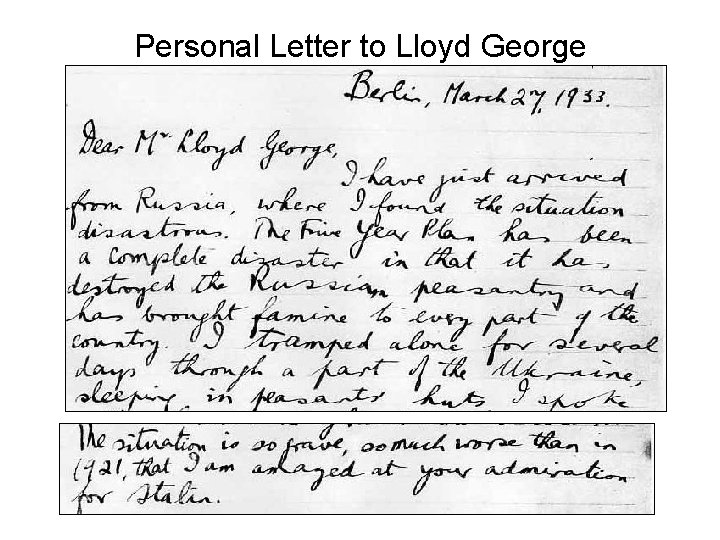 Personal Letter to Lloyd George
Berlin, March 27, 1933.
Dear Mr Lloyd George,
I have just arrived
from Russia, where I found the situation
disastrous. The Five Year Plan has been
a complete disaster in that it has
destroyed the Russian peasantry and
has brought famine to every part of the
country. I tramped alone for several
days through a part of the Ukraine,
sleeping in peasants' huts. I spoke
The situation is so grave, so much worse than in
1921, that I am amazed at your admiration
for Stalin.